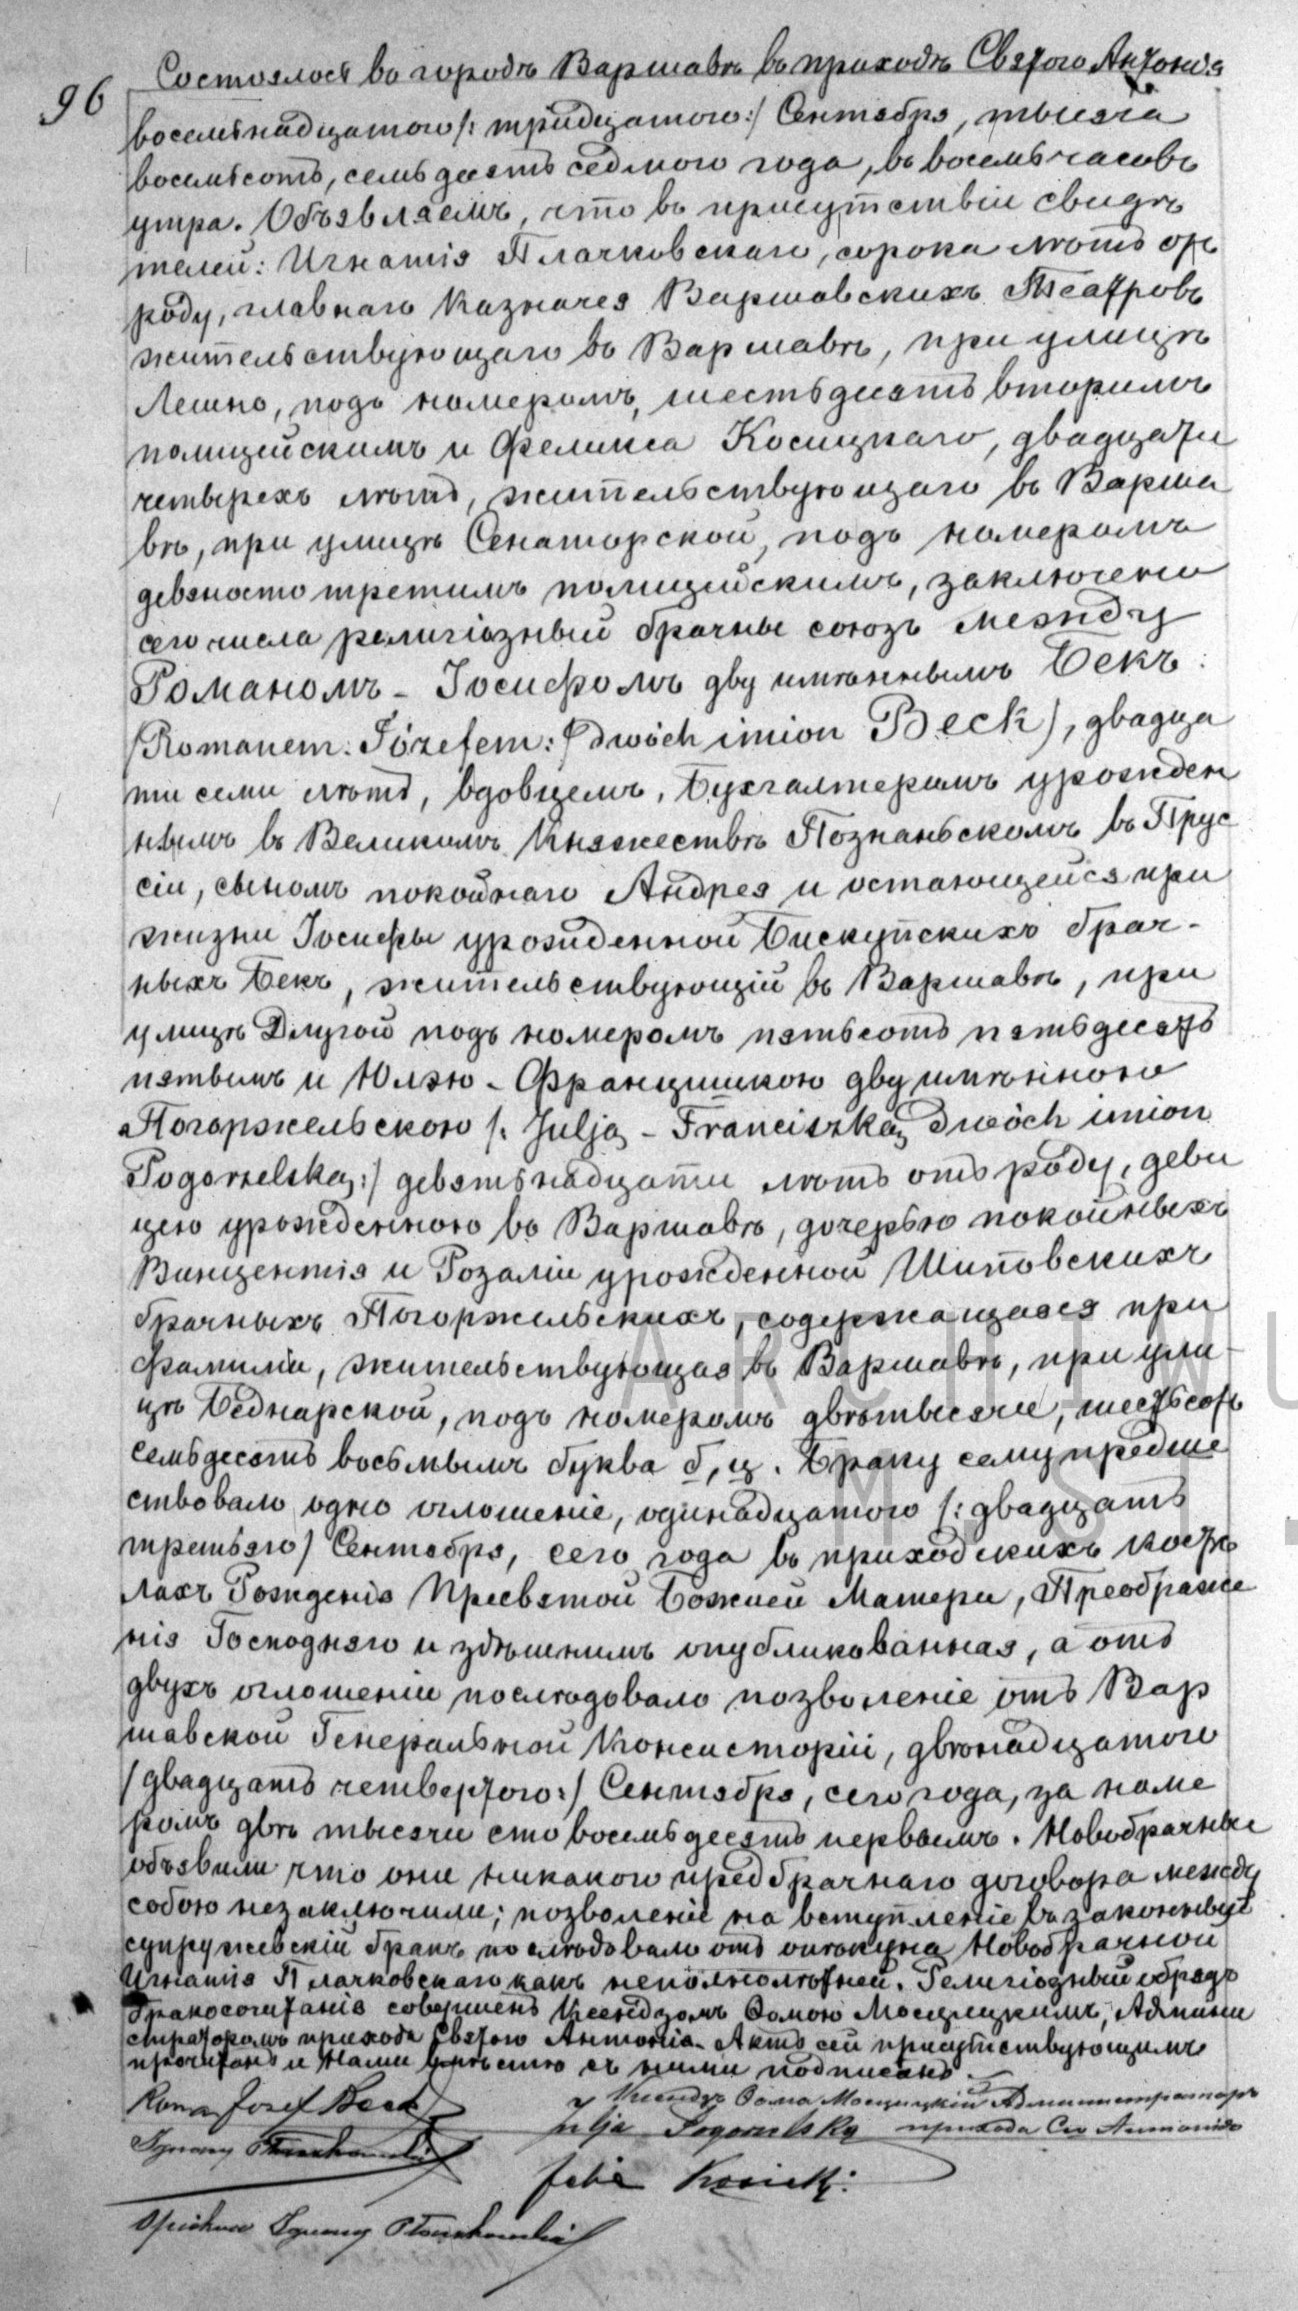 96
Состоялось въ городѣ Варшавѣ въ приходѣ Святого Антонія
восемьнадцатого /: тридцатого :/ Сентября, тысяча
восемьсотъ, семьдесятъ седмого года, въ восемь часовъ
утра. Объявляемъ, что въ присутствіи свидѣ
телей: Игнатія Плачковскаго, сорока лѣтъ отъ
роду, главнаго Казначея Варшавскихъ Театровъ
жительствующаго въ Варшавѣ, при улицѣ
Лешно, подъ номеромъ, шестьдесятъ вторимъ
полицейскимъ и Феликса Косицкаго, двадцати
четырехъ лѣтъ, жительствующаго въ Варша
вѣ, при улицѣ Сенаторской, подъ номеромъ
девяносто третимъ полицейскимъ, заключено
сего числа религіозный брачные союзъ между
Романомъ - Іосифомъ двуимѣннымъ Бекъ :
/Romanem : Józefem : (dwóch imion Beck), двадца
ти семи лѣтъ, вдовцемъ, Бухгалтеромъ урожден
нымъ въ Великомъ Княжествѣ Познаньскомъ въ Прус
сіи, сыномъ покойнаго Андрея и остающейся при
жизни Іосифы урожденной Бискупскихъ брач-
ныхъ Бекъ, жительствующій въ Варшавѣ, при
улицѣ Длугой подъ номеромъ пятьсотъ пятьдесятъ
пятымъ и Юлію - Францишкою двуимѣнною
Погоржельскою /: Julją - Franciszką dwóch imion
Pogorzelską :/ девятьнадцати лѣтъ отъ роду, деви
цею урожденною въ Варшавѣ, дочерью покойныхъ
Винцентія и Розаліи урожденной Шиповскихъ
брачныхъ Погоржельскихъ, содержащаяся при
фамиліи, жительствующая въ Варшавѣ, при ули-
цѣ Беднарской, подъ номеромъ двѣтысячи, шестьсотъ
семьдесятъ восьмымъ буква б, ц. Браку сему предше
ствовало одно оглошеніе, одинадцатого /: двадцать
третьяго/ Сентября, сего года въ приходскихъ косте
лахъ Рожденія Пресвятой Божіей Матери, Преображе
нія Господняго и здѣшнимъ опубликованная, а отъ
двухъ оглошеніи послѣдовало позволеніе отъ Вар
шавской Генеральной Консисторіи, двѣнадцатого
/двадцать четвертого :/ Сентября, сего года, за номе
ромъ двѣ тысячи сто восемьдесятъ первымъ. Новобрачные
объявили что они никакого предбрачнаго договора между
собою незаключили; позволеніе на вступленіе въ законный
супружевскій бракъ послѣдовало отъ опѣкуна Новобрачной
Игнатія Плачковскаго какъ неполнолѣтней. Религіозный обрядъ
бракосочитанія совершенъ Ксендзомъ Ѳомою Мосцицкимъ, Админи
страторомъ прихода Святого Антонія. Актъ сей присутствующимъ
прочитанъ и Нами вмѣстѣ съ ними подписанъ.
Roman Josef Beck Ксендзъ Ѳома Мосцицкій Администраторъ
Julja Pogorzelska прихода Св Антонія
Ignacy Płaczkowski
Felix Kosicki
Opiekun Ignacy Płaczkowski
ARCHIWU
M. ST.